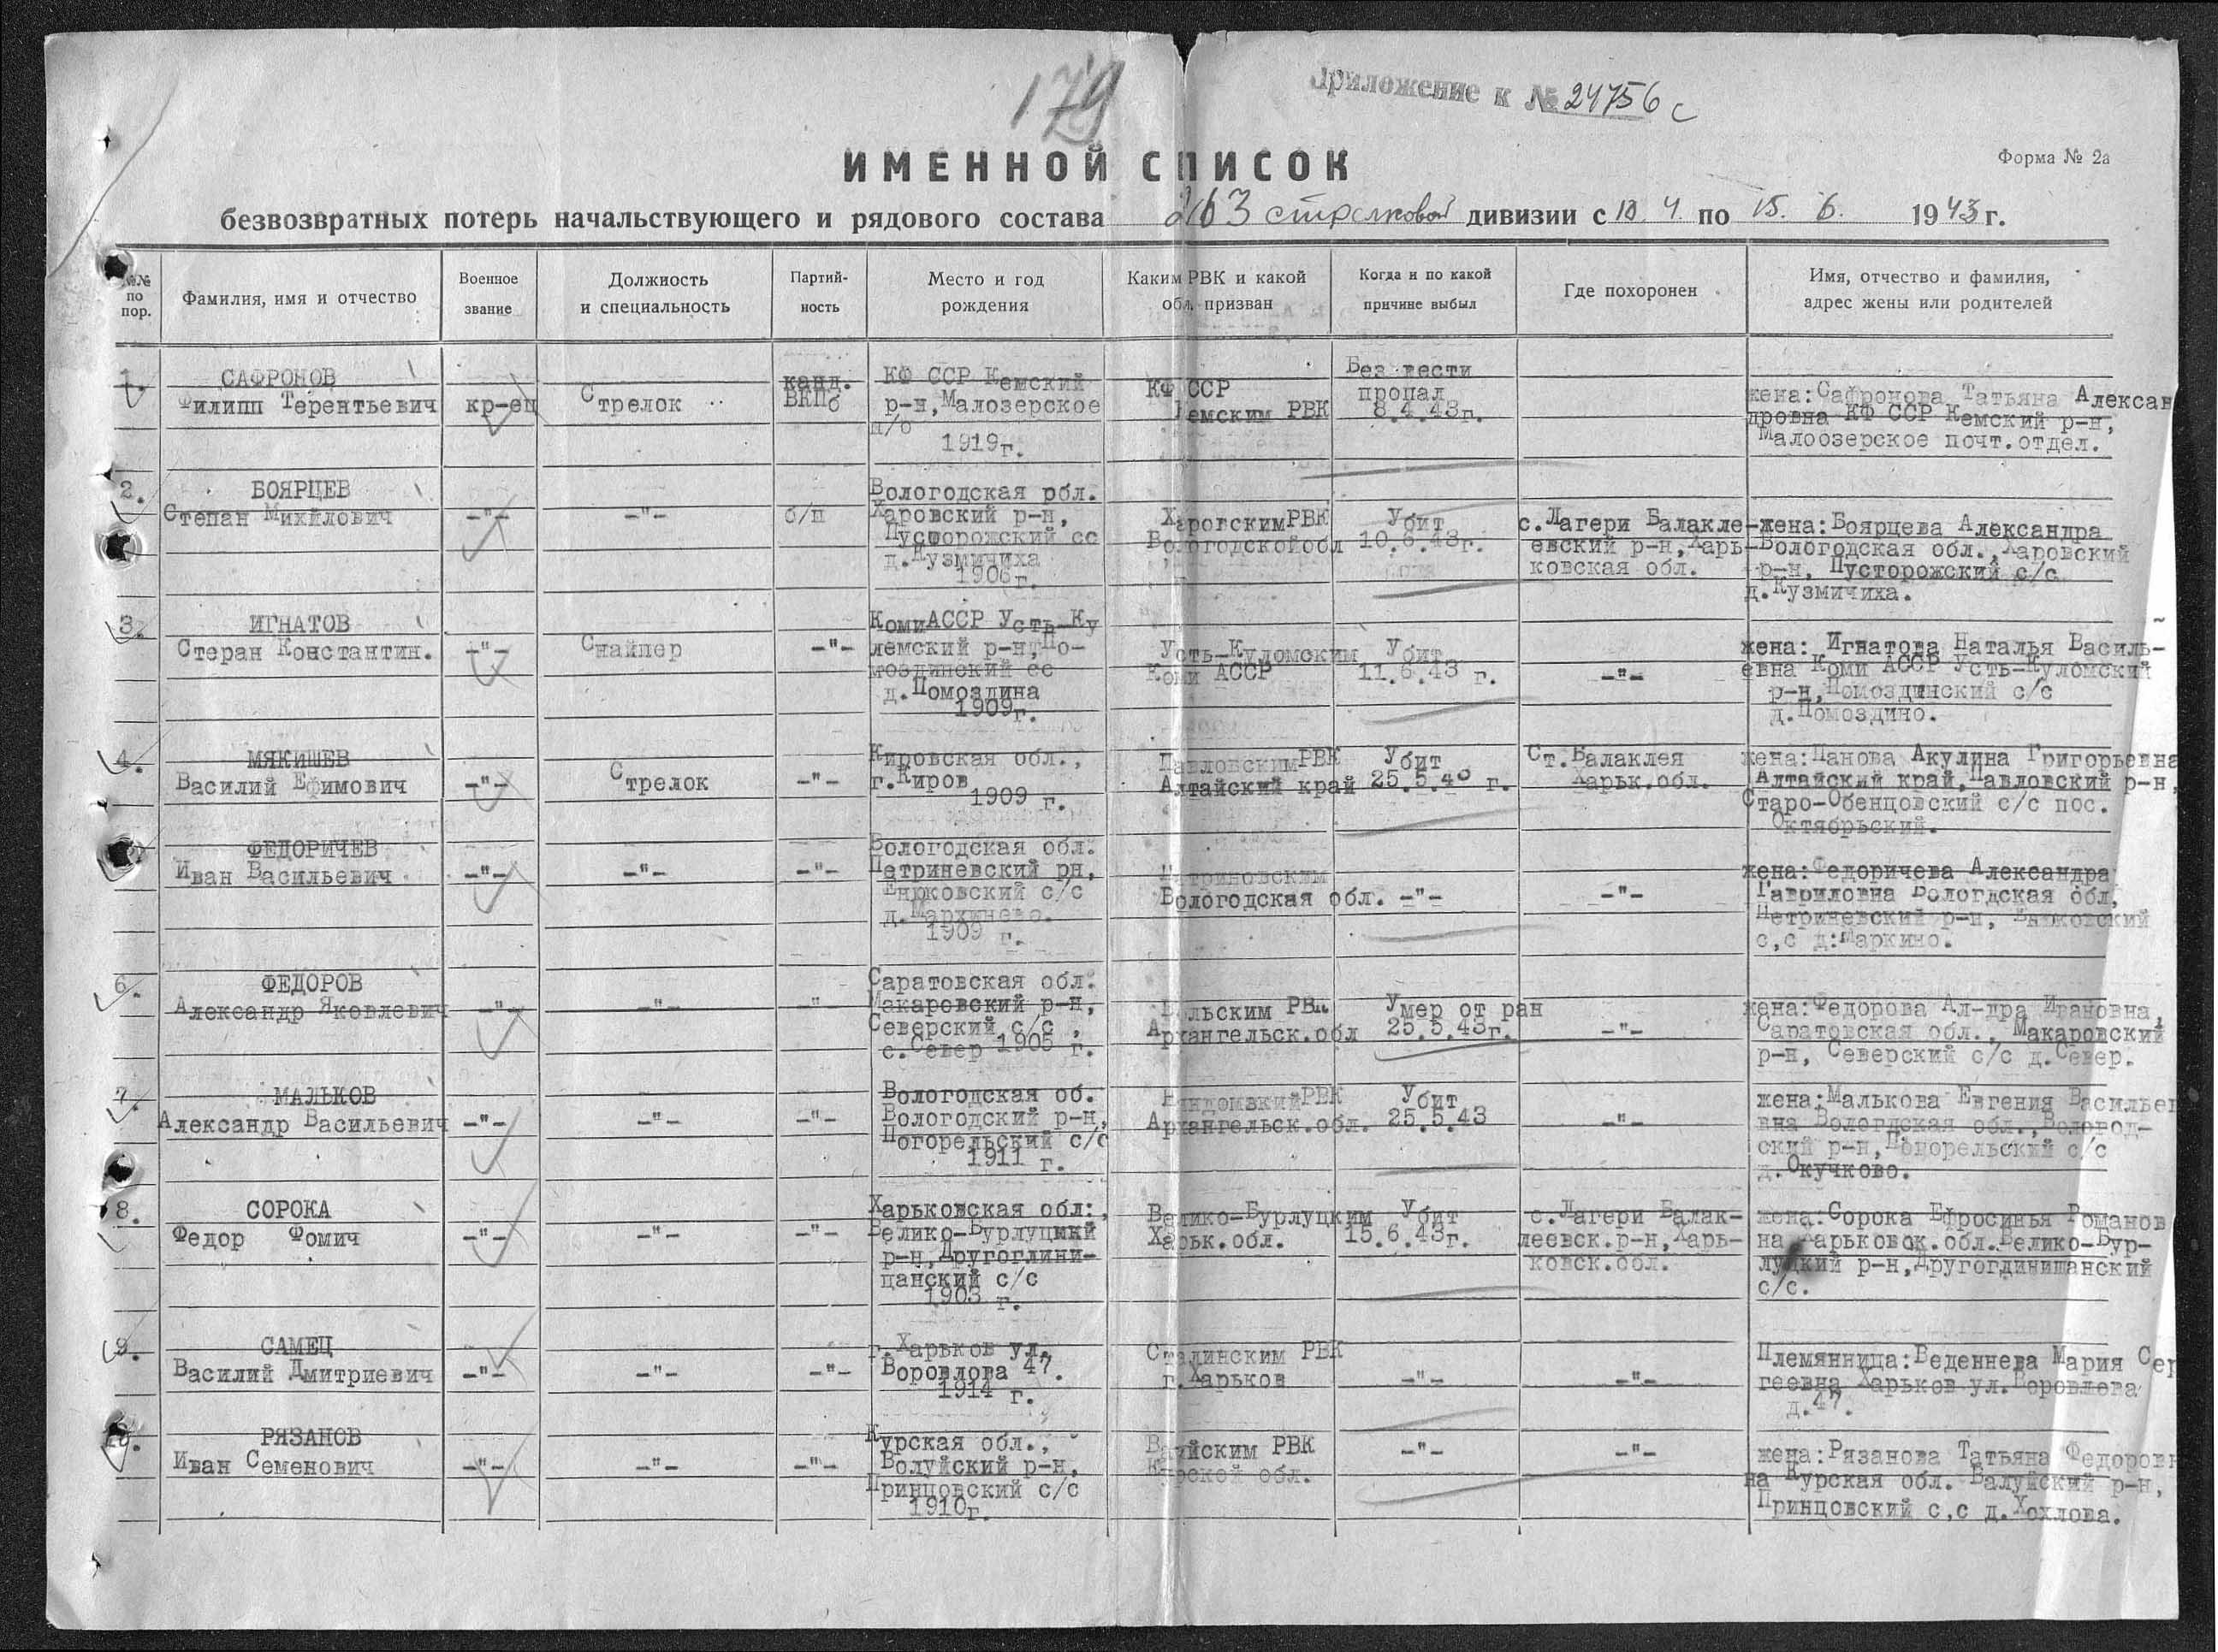 179
Приложение к № 24756 с
ИМЕННОЙ СПИСОК
Форма № 2а
безвозвратных потерь начальствующего и рядового состава 263 стрелковой дивизии с 10. 4. по 15. 6. 1943 г.
№№ по пор.
Фамилия, имя и отчество
Военное звание
Должность и специальность
Партий-ность
Место и год рождения
Каким РВК и какой обл. призван
Когда и по какой причине выбыл
Где похоронен
Имя, отчество и фамилия, адрес жены или родителей
1.
САФРОНОВ
Филипп Терентьевич
кр-ец
Стрелок
канд.
ВКПб
КФ ССР Кемский
р-н, Малозерское
п/о
1919г.
КФ ССР
Кемским РВК
Без вести
пропал
8.4.43г.
жена: Сафронова Татьяна Алексан
дровна КФ ССР Кемский р-н,
Малоозерское почт.отдел.
2.
БОЯРЦЕВ
Степан Михйлович
-"-
-"-
б/п
Вологодская обл.
Харовский р-н,
Пусторожский сс
д.Кузмичиха
1906г.
Харовским РВК
Вологодской обл
Убит
10.6.43г.
с.Лагери Балакле-
евский р-н, Харь-
ковская обл.
жена: Боярцева Александра
Вологодская обл., Харовский
р-н, Пусторожский с/с
д.Кузмичиха.
3.
ИГНАТОВ
Стеран Константин.
-"-
Снайпер
-"-
Коми АССР Усть-Ку
лемский р-н, По-
моздинский сс
д.Помоздина
1909г.
Усть-Куломским
Коми АССР
Убит
11.6.43 г.
-"-
жена: Игнатова Наталья Василь-
евна Коми АССР Усть-Куломский
р-н, Помоздинский с/с
д.Помоздино.
4.
МЯКИШЕВ
Василий Ефимович
-"-
Стрелок
-"-
Кировская обл.,
г.Киров
1909 г.
Павловским РВК
Алтайский край
Убит
25.5.43 г.
Ст.Балаклея
Харьк.обл.
жена: Панова Акулина Григорьевна
Алтайский край, Павловский р-н,
Старо-Обенцовский с/с пос.
Октябрьский.
ФЕДОРИЧЕВ
Иван Васильевич
-"-
-"-
-"-
Вологодская обл.
Петриневский рн,
Енюковский с/с
д.
1909 г.
Петриновским
Вологодская обл.
-"-
-"-
жена: Федоричева Александра
Гавриловна Вологдская обл,
Петриневский р-н, Енюковский
с,с д: Маркино.
6.
ФЕДОРОВ
Александр Яковлевич
-"-
-"-
-"-
Саратовская обл.
Макаровский р-н,
Северский с/с,
с.Север 1905 г.
РВК
Архангельск.обл
Умер от ран
25.5.43г.
-"-
жена: Федорова Ал-дра Ивановна,
Саратовская обл., Макаровский
р-н, Северский с/с д.Север.
7.
МАЛЬКОВ
Александр Васильевич
-"-
-"-
-"-
Вологодская об.
Вологодский р-н,
Погорельский с/с
1911 г.
Няндомский РВК
Архангельск.обл.
Убит
25.5.43
-"-
жена: Малькова Евгения Васильев
вна Вологдская обл., Вологод-
ский р-н, Погорельский с/с
д.Окучково.
8.
СОРОКА
Федор Фомич
-"-
-"-
-"-
Харьковская обл.,
Велико-Бурлуцкий
р-н, Другоглини-
щанский с/с
1903 г.
Велико-Бурлуцким
Харьк.обл.
Убит
15.6.43г.
с.Лагери Балак-
леевск.р-н, Харь-
ковск.обл.
жена: Сорока Ефросинья Романов
на Харьковск.обл. Велико-Бур-
луцкий р-н,
с/с.
9.
САМЕЦ
Василий Дмитриевич
-"-
-"-
-"-
г.Харьков ул.
Воровлова 47.
1914 г.
Сталинским РВК
г.Харьков
-"-
-"-
Племянница: Веденнева Мария Сер
геевна Харьков ул.Воровлева
д.47.
10.
РЯЗАНОВ
Иван Семенович
-"-
-"-
-"-
Курская обл.,
Волуйский р-н,
Принцовский с/с
1910г.
РВК
Курской обл.
-"-
-"-
жена: Рязанова Татьяна Федоровн
на Курская обл. Валуйский р-н,
Принцовский с,с д.Хохлова.